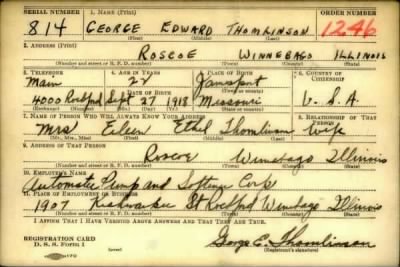 SERIAL NUMBER 1. NAME (Print) ORDER NUMBER
814 GEORGE EDWARD THOMLINSON 1246
(First) (Middle) (Last)
2. ADDRESS (Print)
ROSCOE WINNEBAGO ILLINOIS
(Number and street or R. F. D. number) (Town) (County) (State)
3. TELEPHONE 4. AGE IN YEARS 5. PLACE OF BIRTH 6. COUNTRY OF CITIZENSHIP
Main 22 Jamesport
DATE OF BIRTH
4000 Rockford Sept 27 1918 Missouri U. S. A
(Exchange) (No.) (Mo.) (Day) (Yr.) (State or country)
7. NAME OF PERSON WHO WILL ALWAYS KNOW YOUR ADDRESS 8. RELATIONSHIP OF THAT PERSON
Mrs) Eileen Ethel Thomlinson Wife
(Mr., Mrs., Miss) (First) (Middle) (Last)
9. ADDRESS OF THAT PERSON
Roscoe Winnebago Illinois
(Number and street or R. F. D. number) (Town) (County) (State)
10. EMPLOYER'S NAME
Automatic Pump and Softener Corp
11. PLACE OF EMPLOYMENT OR BUSINESS
1907 Kishwaukee St Rockford Winnebago Illinois
(Number and street or R. F. D. number) (Town) (County) (State)
I AFFIRM THAT I HAVE VERIFIED ABOVE ANSWERS AND THAT THEY ARE TRUE.
REGISTRATION CARD
D. S. S. Form 1 George E. Thomlinson
(Registrant's signature)